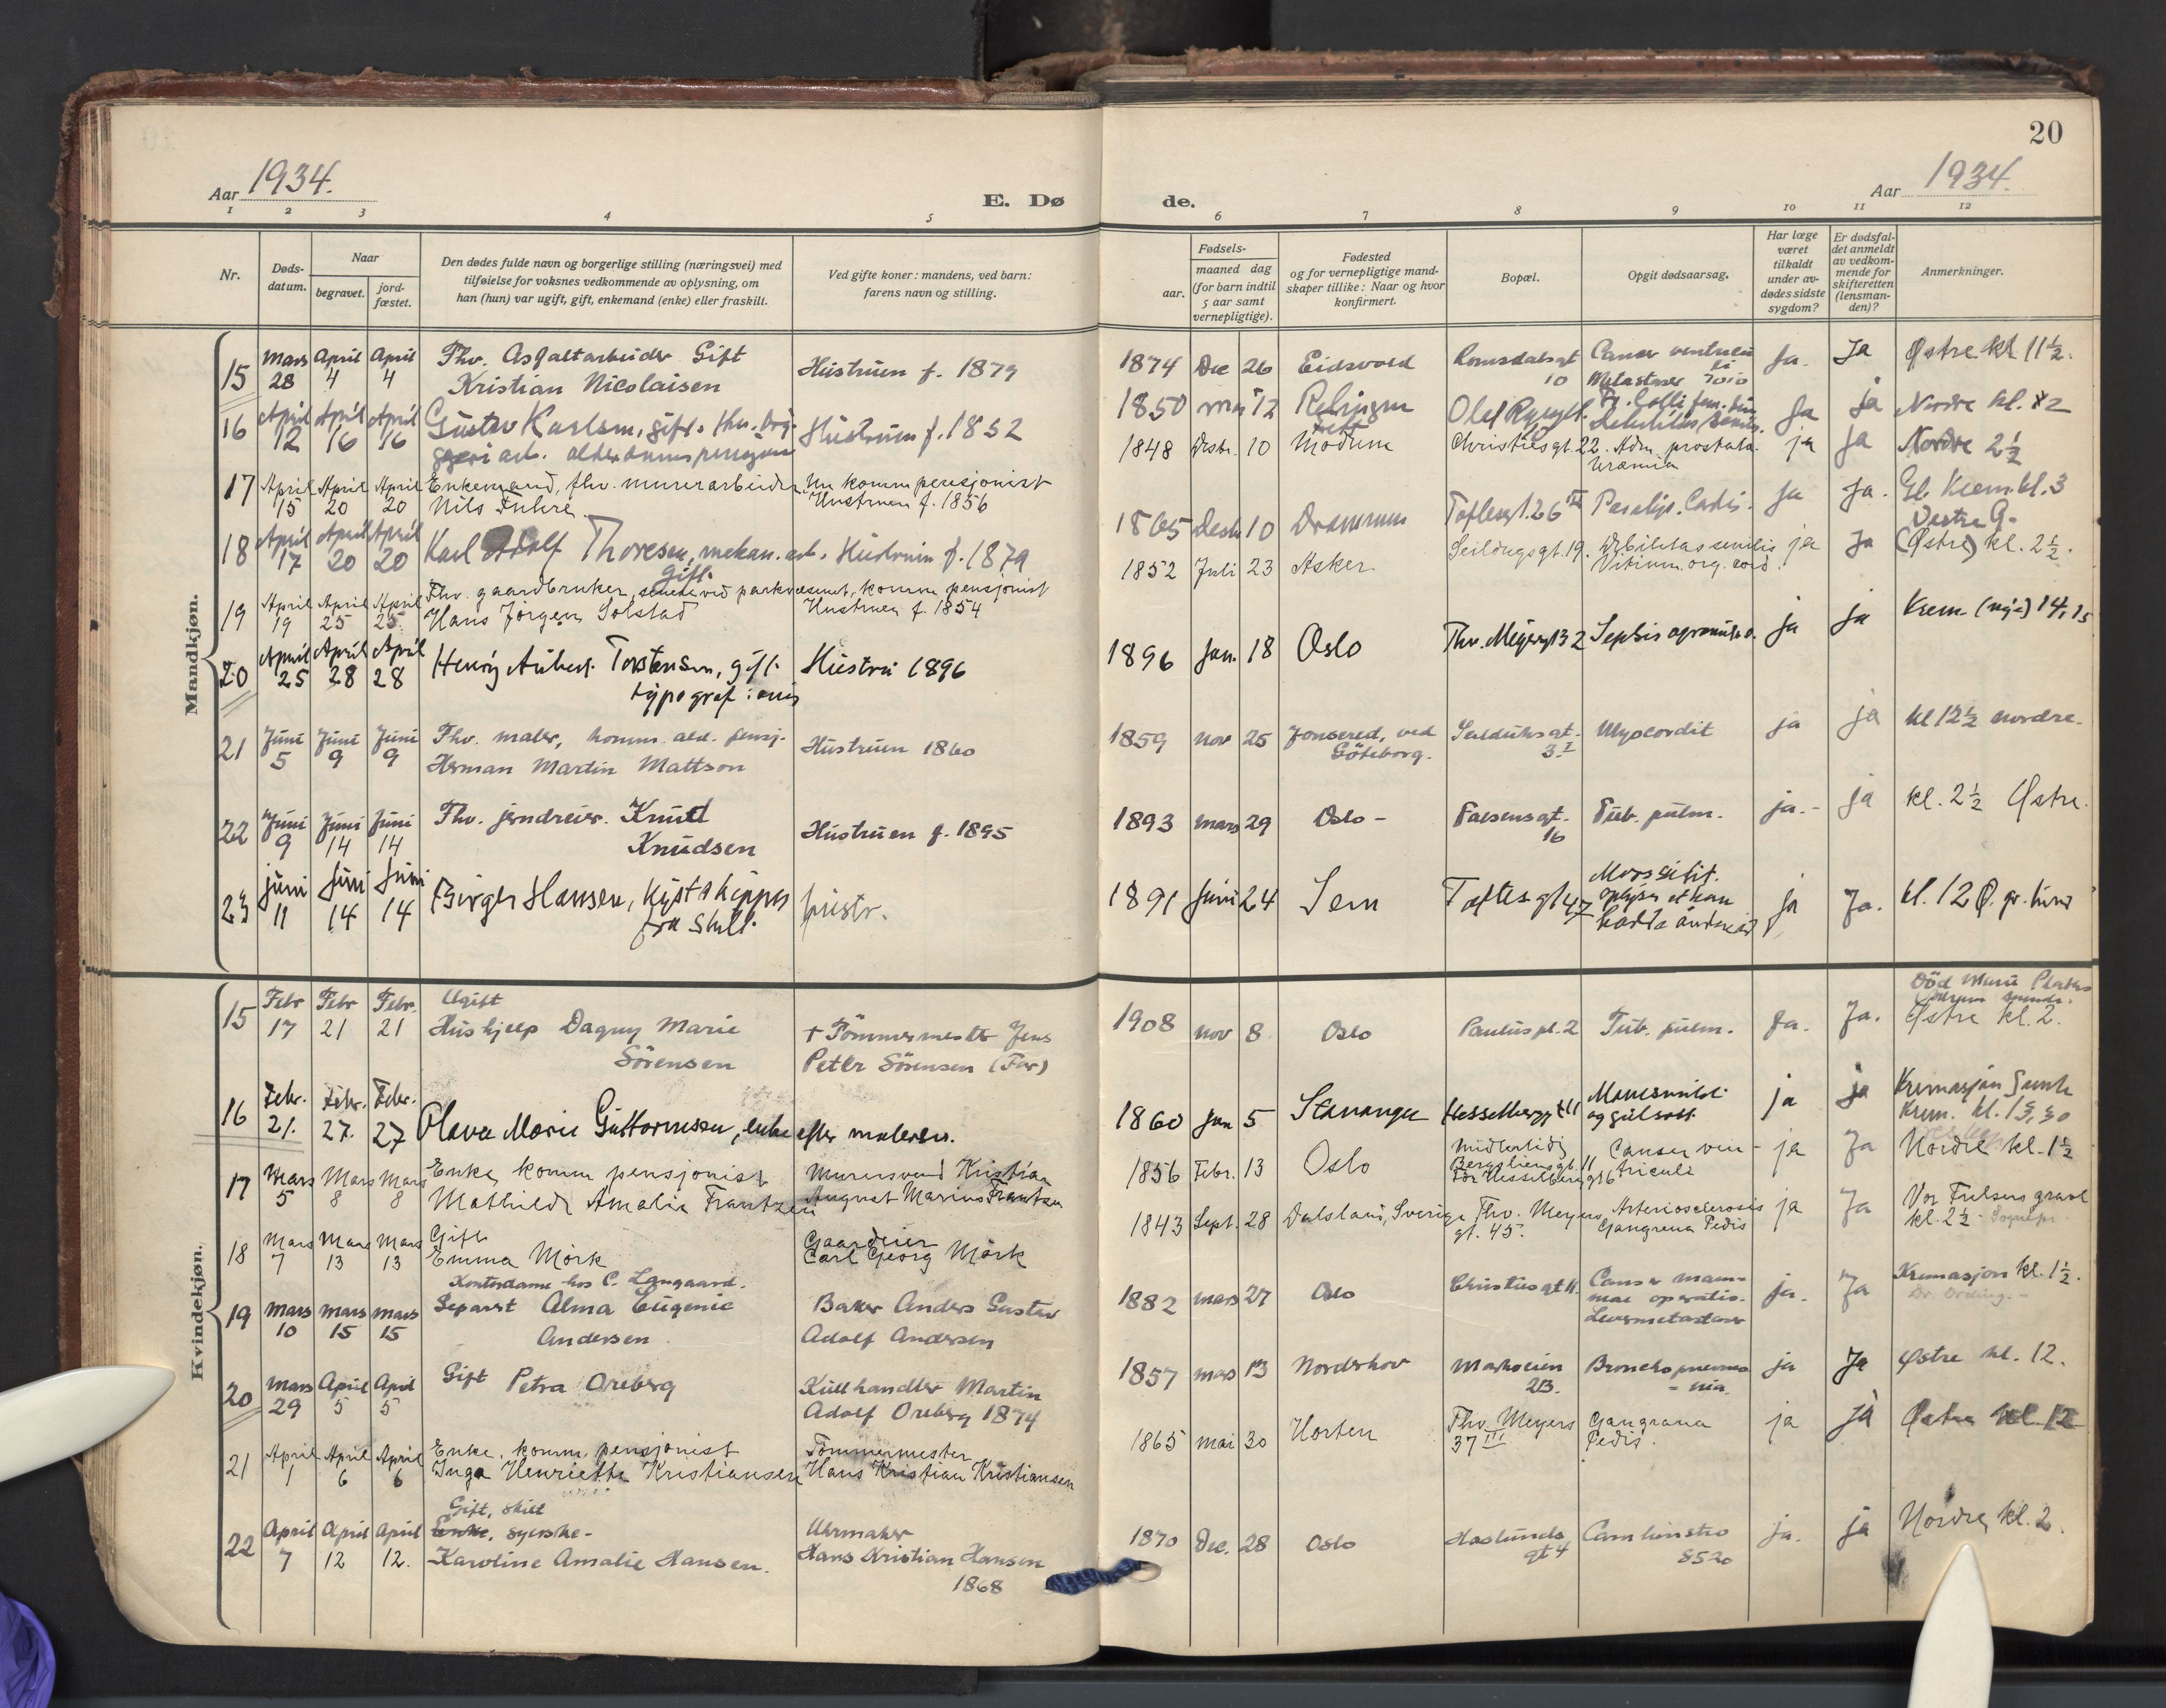 20
Aar 1934.
E. Dø
de.
Aar 1934.
1 2 3 4 5 6 7 8 9 10 11 12
Nr.
Døds-
datum.
Naar
begravet.
jord-
fæstet.
Den dødes fulde navn og borgerlige stilling (næringsvei) med
tilføielse for voksnes vedkommende av oplysning, om
han (hun) var ugift, gift, enkemand (enke) eller fraskilt.
Ved gifte koner: mandens, ved barn:
farens navn og stilling.
Fødsels-
aar.
maaned dag
(for barn indtil
5 aar samt
vernepligtige).
Fødested
og for vernepligtige mand-
skaper tillike: Naar og hvor
konfirmert.
Bopæl.
Opgit dødsaarsag.
Har læge
været
tilkaldt
under av-
dødes sidste
sygdom?
Er dødsfal-
det anmeldt
av vedkom-
mende for
skifteretten
(lensman-
den)?
Anmerkninger.
Mandkjøn.
15 Mars 28 April 4 April 4
Fhv. Asfaltarbeider Gift
Kristian Nicolaisen
Hustruen f. 1879
1874 Dec 26 Eidsvold Romsdalsgt 10
Cancer ventriculi
Metastaser
Ja. Ja Østre kl 11½.
16 April 12 April 16 April 16
Gustav Karlsen, gift. fhv.
arb.
Hustruen f. 1852
1850 mai 12
ja ja Nordre kl. 2
17 April 15 April 20 April 20
Enkemand, fhv. murerarbeider, komm pensjonist
Nils Fuhre.
Hustruen f. 1856
1848 10 Modum Christiesgt. 22. Adn. prostata.
Uræmia
ja ja Nordre 2½
18 April 17 April 20 April 20
Karl Adolf Thoresen, mekan. arb.
Gift.
Hustruen f. 1879
1865 10 Drammen Toftesgt. 26
Ja Ja. Krem. kl. 3
19 April 19 April 25 April 25.
Fhv. gaardbruker, senere ved parkvæsenet, komm pensjonist
Hans Jørgen Solstad
Hustruen f. 1854
1852 Juli 23 Asker Seildugsgt. 19. Debilitas senilis
Vitium. org. cord.
ja Ja (Østre) kl. 2½.
20 April 25 April 28 April 28
Henry Torstensen, gift.
typograf
Hustru 1896
1896 Jan. 18 Oslo Thv. Meyersgt 32 Sepsis
ja ja Krem. 14,15
21 Juni 5 Juni 9 Juni 9
Fhv. maler, komm. ald. pensj.
Herman Martin Mattson
Hustruen 1860
1859 nov 25 Jonsered, ved
Göteborg.
Seilduksgt.
3 I
Myocordit
ja ja kl 12½ nordre.
22 Juni 9 Juni 14 Juni 14
Fhv. jerndreier. Knut
Knudsen
Hustruen f. 1895
1893 mars 29 Oslo - Falsensgt. 16 Tub. pulm.
ja.- ja kl. 2½ Østre.
23 juni 11 Juni 14 Juni 14
Birger Hansen, Kystskipper
fra skilt.
hustr.
1891 Juni 24 Sem Toftesgt 47
ja Ja. kl. 12 Ø.
Kvindekjøn.
15 Febr 17 Febr 21 Febr. 21
Ugift
Hushjelp Dagny Marie
Sörensen
+ Tömmermester Jens
Peter Sörensen (Far)
1908 nov 8 Oslo Pauluspl. 2 Tub. pulm.
Ja. Ja.
Östre kl. 2.
16 Febr. 21. Febr. 27. Febr. 27
Olava Marie Guttormsen, enke efter maleren.
1860 Jan 5 Stavanger Hesselbergsgt 11
og gulsott
ja ja Kremasjon
Krem. kl. 15,30
17 Mars 5 Mars 8 Mars 8
Enke, komm pensjonist
Mathilde Amalie Frantzen
Murersvend Kristian
August Marius Frantzen
1856 Febr. 13 Oslo
Midlertidig
Bergsliensgt. 11
Før Hesselbergsgt 6
Cancer ven-
triculi
ja Ja Nordre kl. 1½
18 Mars 7 Mars 13 Mars 13
Gift
Emma Mörk
Gaardeier
Carl Georg Mörk
1843 Sept. 28 Dalsland, Sverige Thv. Meyers
gt. 45.
Arteriosclerosis
Gangrena Pedis
ja Ja Vor Frelsers gravl
kl. 2½
19 mars 10 mars 15 mars 15
Kontordame hos C. Langaard.
Separert Alma Eugenie
Andersen
Baker Anders Gustav
Adolf Andersen
1882 mars 27 Oslo Christiesgt 11.
Cancer mam-
mae operatis.
Levermetastaser
ja. Ja Kremasjon kl. 1½.
20 mars 29 April 5 April 5
Gift Petra Oreberg
Kullhandler Martin
Adolf Oreberg 1874
1857 mars 13 Norderhov Markveien
2B.
Bronchopneumo
- nia.
ja Ja Østre kl. 12.
21 April 1 April 6 April 6
Enke, komm. pensjonist
Inga Henriette Kristiansen
Tömmermester
Hans Kristian Kristiansen
1865 mai 30 Horten Thv. Meyers
37 III
Gangrana
Pedis.
ja ja Østre kl. 12
22 April 7 April 12 April 12.
Gift, skilt
Enke, syerske-
Karoline Amalie Hansen.
Uhrmaker
Hans Kristian Hansen
1868
1870 Dec. 28 Oslo Haslunds
gt 4
ja. ja Nordre kl. 2.